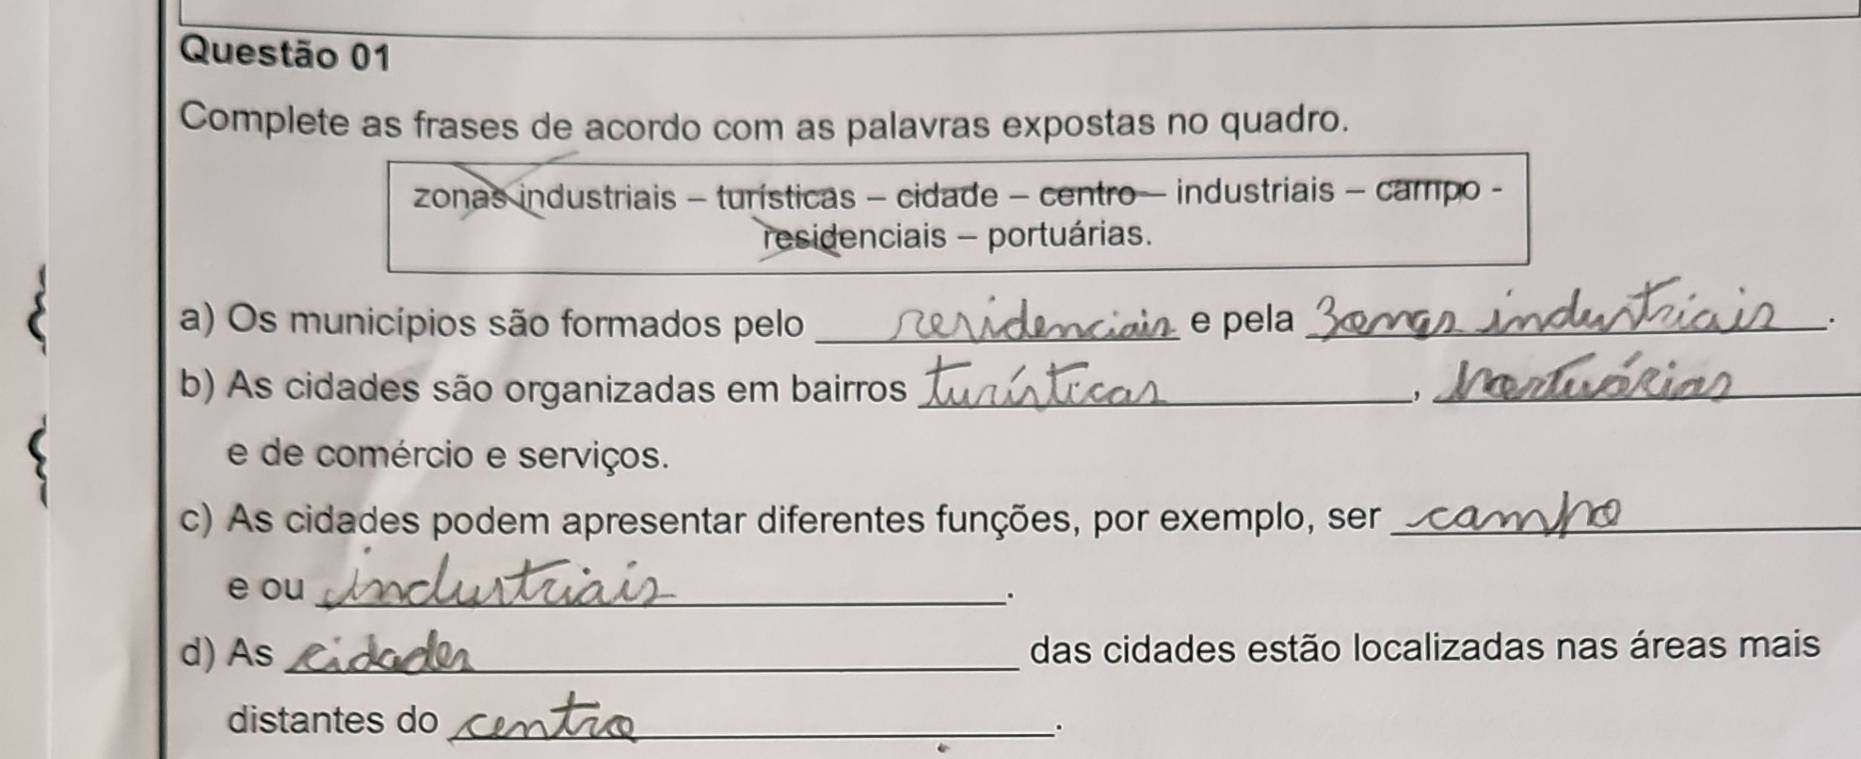 Questão 01
Complete as frases de acordo com as palavras expostas no quadro.
zonas industriais – turísticas – cidade – centro – industriais – campo -
residenciais – portuárias.
a) Os municípios são formados pelo residenciais e pela Zonas industriais.
b) As cidades são organizadas em bairros turísticas, Portuárias
e de comércio e serviços.
c) As cidades podem apresentar diferentes funções, por exemplo, ser campo
e ou industriais.
d) As cidades das cidades estão localizadas nas áreas mais
distantes do centro.